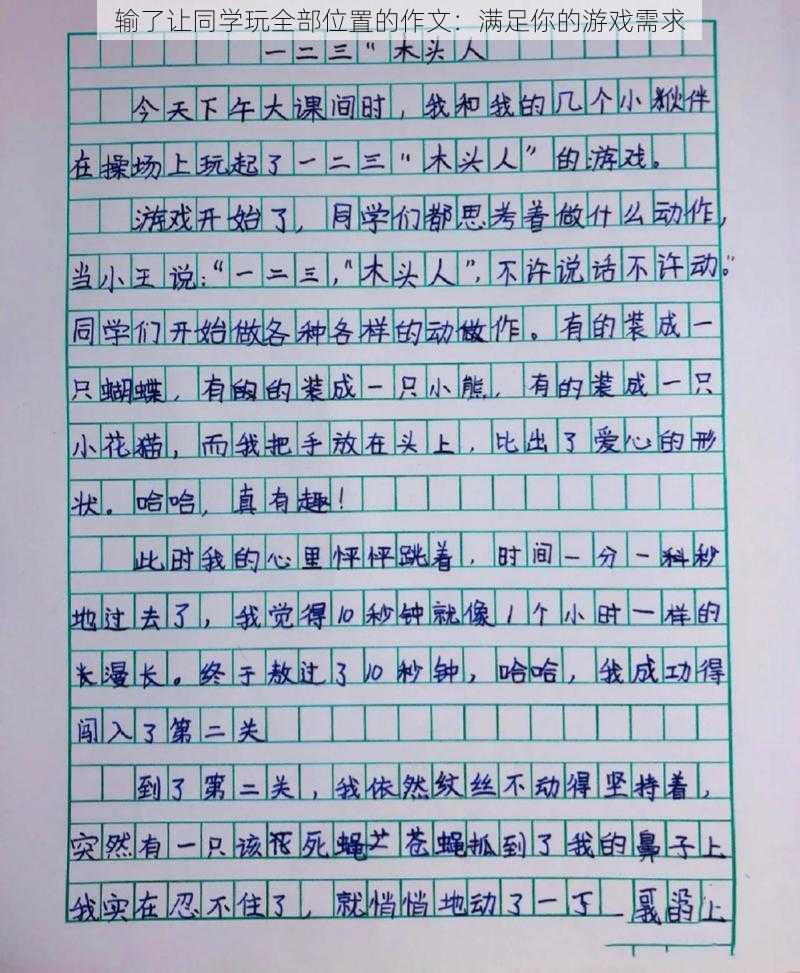 输了让同学玩全部位置的作文：满足你的游戏需求
一二三“木头人
今天下午大课间时，我和我的几个小伙伴
在操场上玩起了一二三“木头人”的游戏。
游戏开始了，同学们都思考着做什么动作，
当小王说：“一二三，“木头人”，不许说话不许动。”
同学们开始做各种各样的动做作。有的装成一
只蝴蝶，有的的装成一只小熊，有的装成一只
小花猫，而我把手放在头上，比出了爱心的形
状。哈哈，真有趣！
此时我的心里怦怦跳着，时间一分一秒
地过去了，我觉得10秒钟就像1个小时一样的
长漫长。终于熬过了10秒钟，哈哈，我成功得
闯入了第二关
到了第二关，我依然纹丝不动得坚持着，
突然有一只该死蝇苍蝇抓到了我的鼻子上
我实在忍不住了，就悄悄地动了一下
上